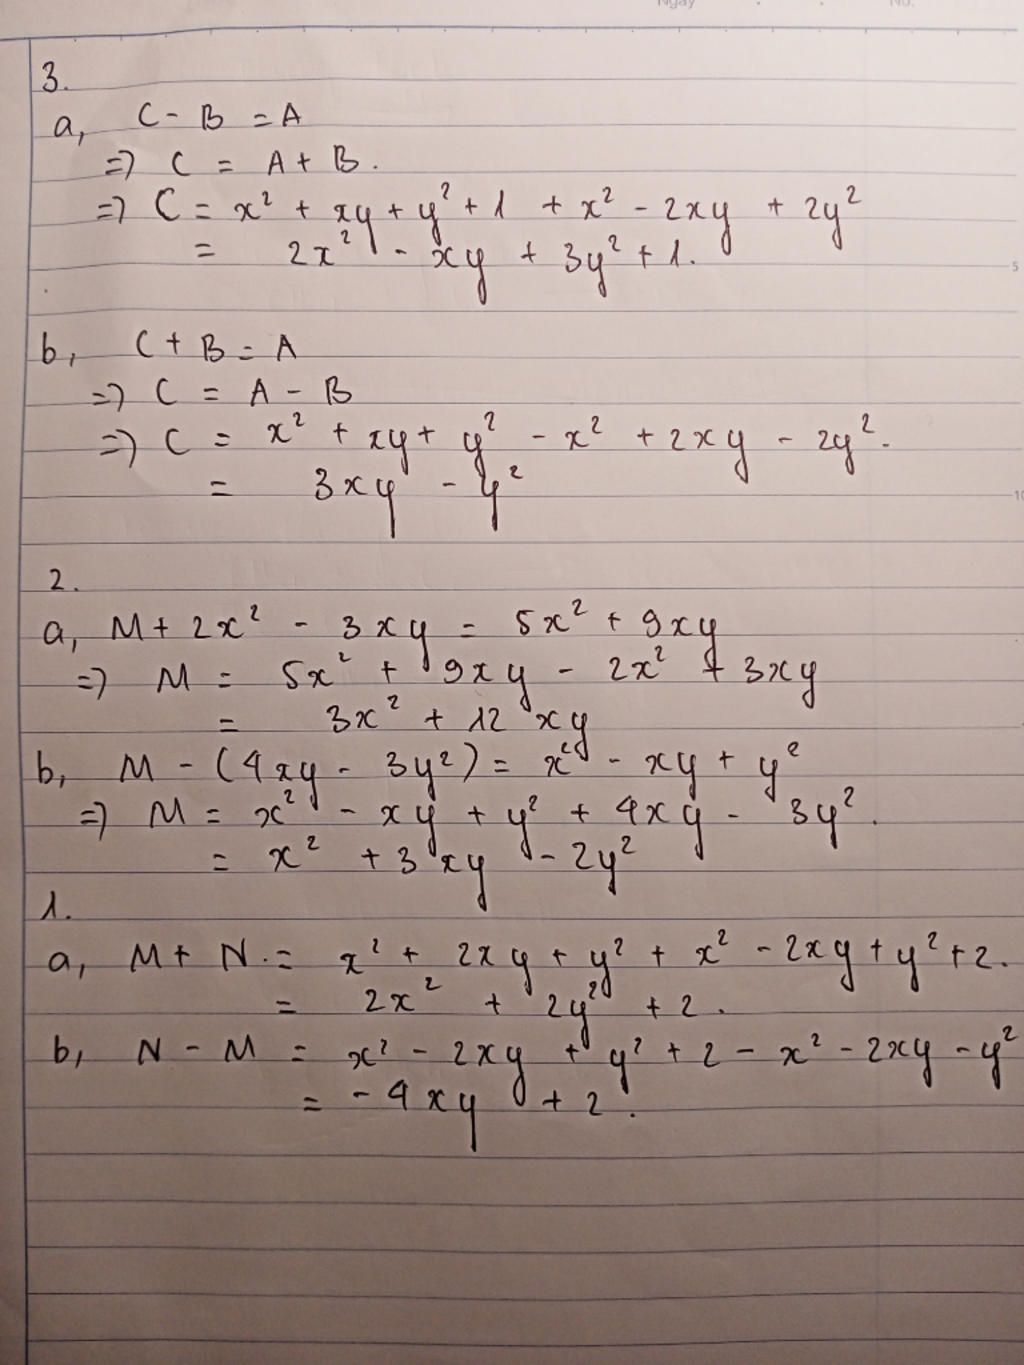 Ngày No.
3.
a, C - B = A
=> C = A + B.
=> C = x² + xy + y² + 1 + x² - 2xy + 2y²
= 2x² - xy + 3y² + 1.
5
b, C + B = A
=> C = A - B
=> C = x² + xy + y² - x² + 2xy - 2y².
= 3xy - y²
10
2.
a, M + 2x² - 3xy = 5x² + 9xy
=> M = 5x² + 9xy - 2x² + 3xy
= 3x² + 12xy
b, M - (4xy - 3y²) = x² - xy + y²
=> M = x² - xy + y² + 4xy - 3y².
= x² + 3xy - 2y²
1.
a, M + N. = x² + 2xy + y² + x² - 2xy + y² + 2.
= 2x² + 2y² + 2.
b, N - M = x² - 2xy + y² + 2 - x² - 2xy - y²
= - 4xy + 2.